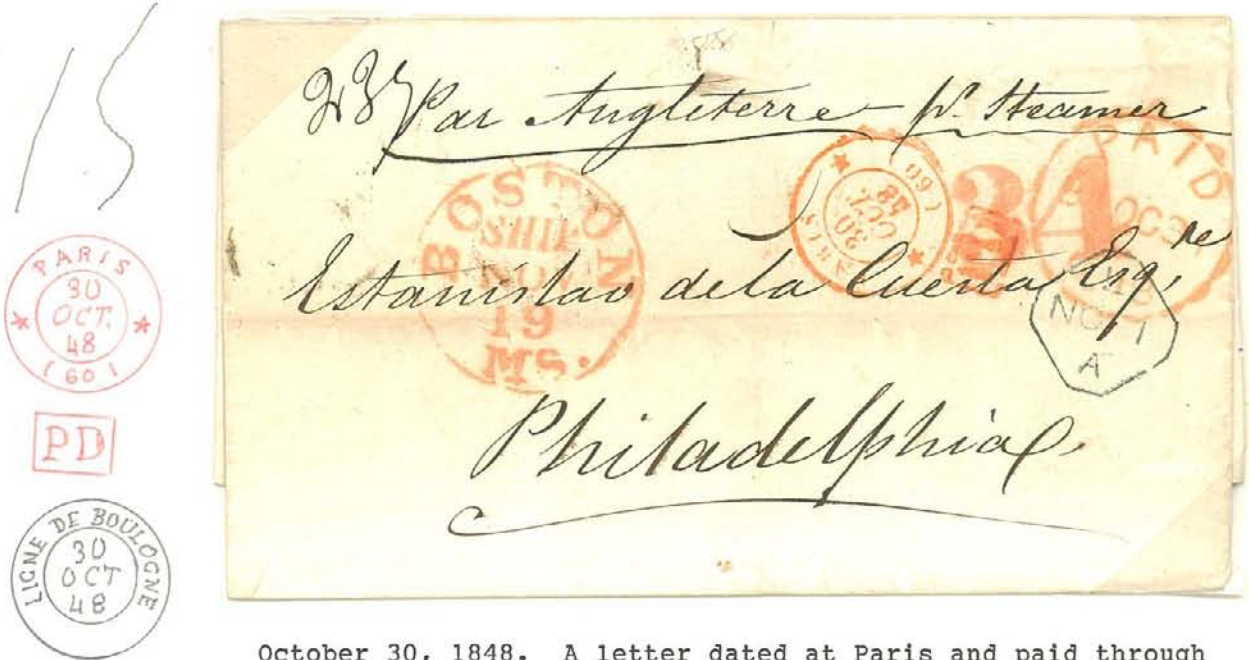 15
PARIS
30
OCT.
48
(60)
PD
LIGNE DE BOULOGNE
30
OCT
48
237
Par Angleterre pr. Steamer
BOSTON
SHIP
NOV
19
MS.
PARIS
30
OCT.
48
(60)
PAID
A
Estanislao de la Cuesta Esqre
NO 1
A
Philadelphia
October 30, 1848. A letter dated at Paris and paid through